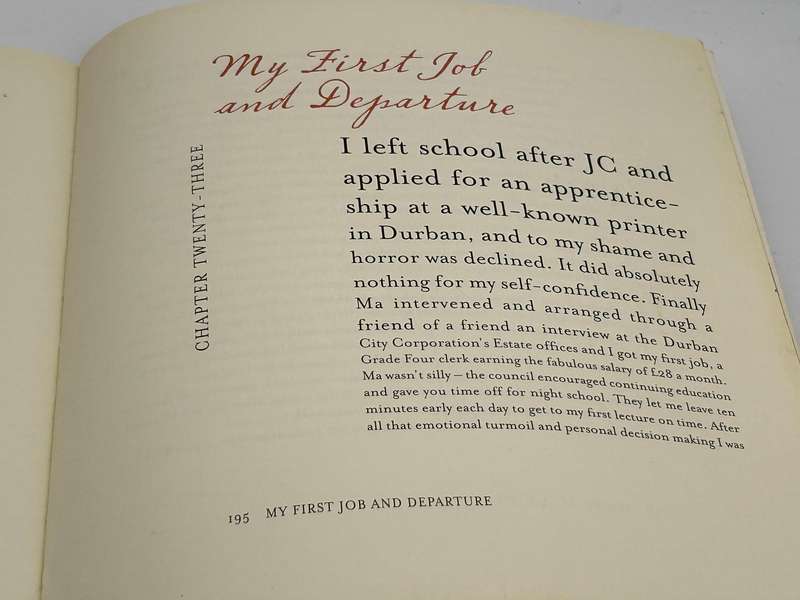 My First Job
and Departure
CHAPTER TWENTY-THREE
I left school after JC and
applied for an apprentice-
ship at a well-known printer
in Durban, and to my shame and
horror was declined. It did absolutely
nothing for my self-confidence. Finally
Ma intervened and arranged through a
friend of a friend an interview at the Durban
City Corporation's Estate offices and I got my first job, a
Grade Four clerk earning the fabulous salary of £28 a month.
Ma wasn't silly – the council encouraged continuing education
and gave you time off for night school. They let me leave ten
minutes early each day to get to my first lecture on time. After
all that emotional turmoil and personal decision making I was
195 MY FIRST JOB AND DEPARTURE